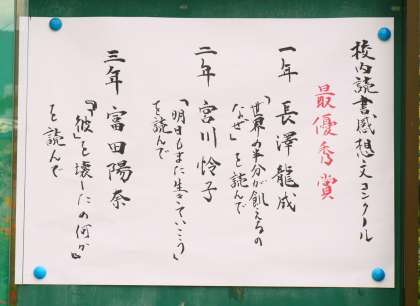 校内読書感想文コンクール
最優秀賞
一年 長澤龍成
「世界の半分が飢えるの
なぜ」を読んで
二年 宮川怜子
「明日もまた生きていこう」
を読んで
三年 富田陽奈
『「彼」を壊したの何か』
を読んで